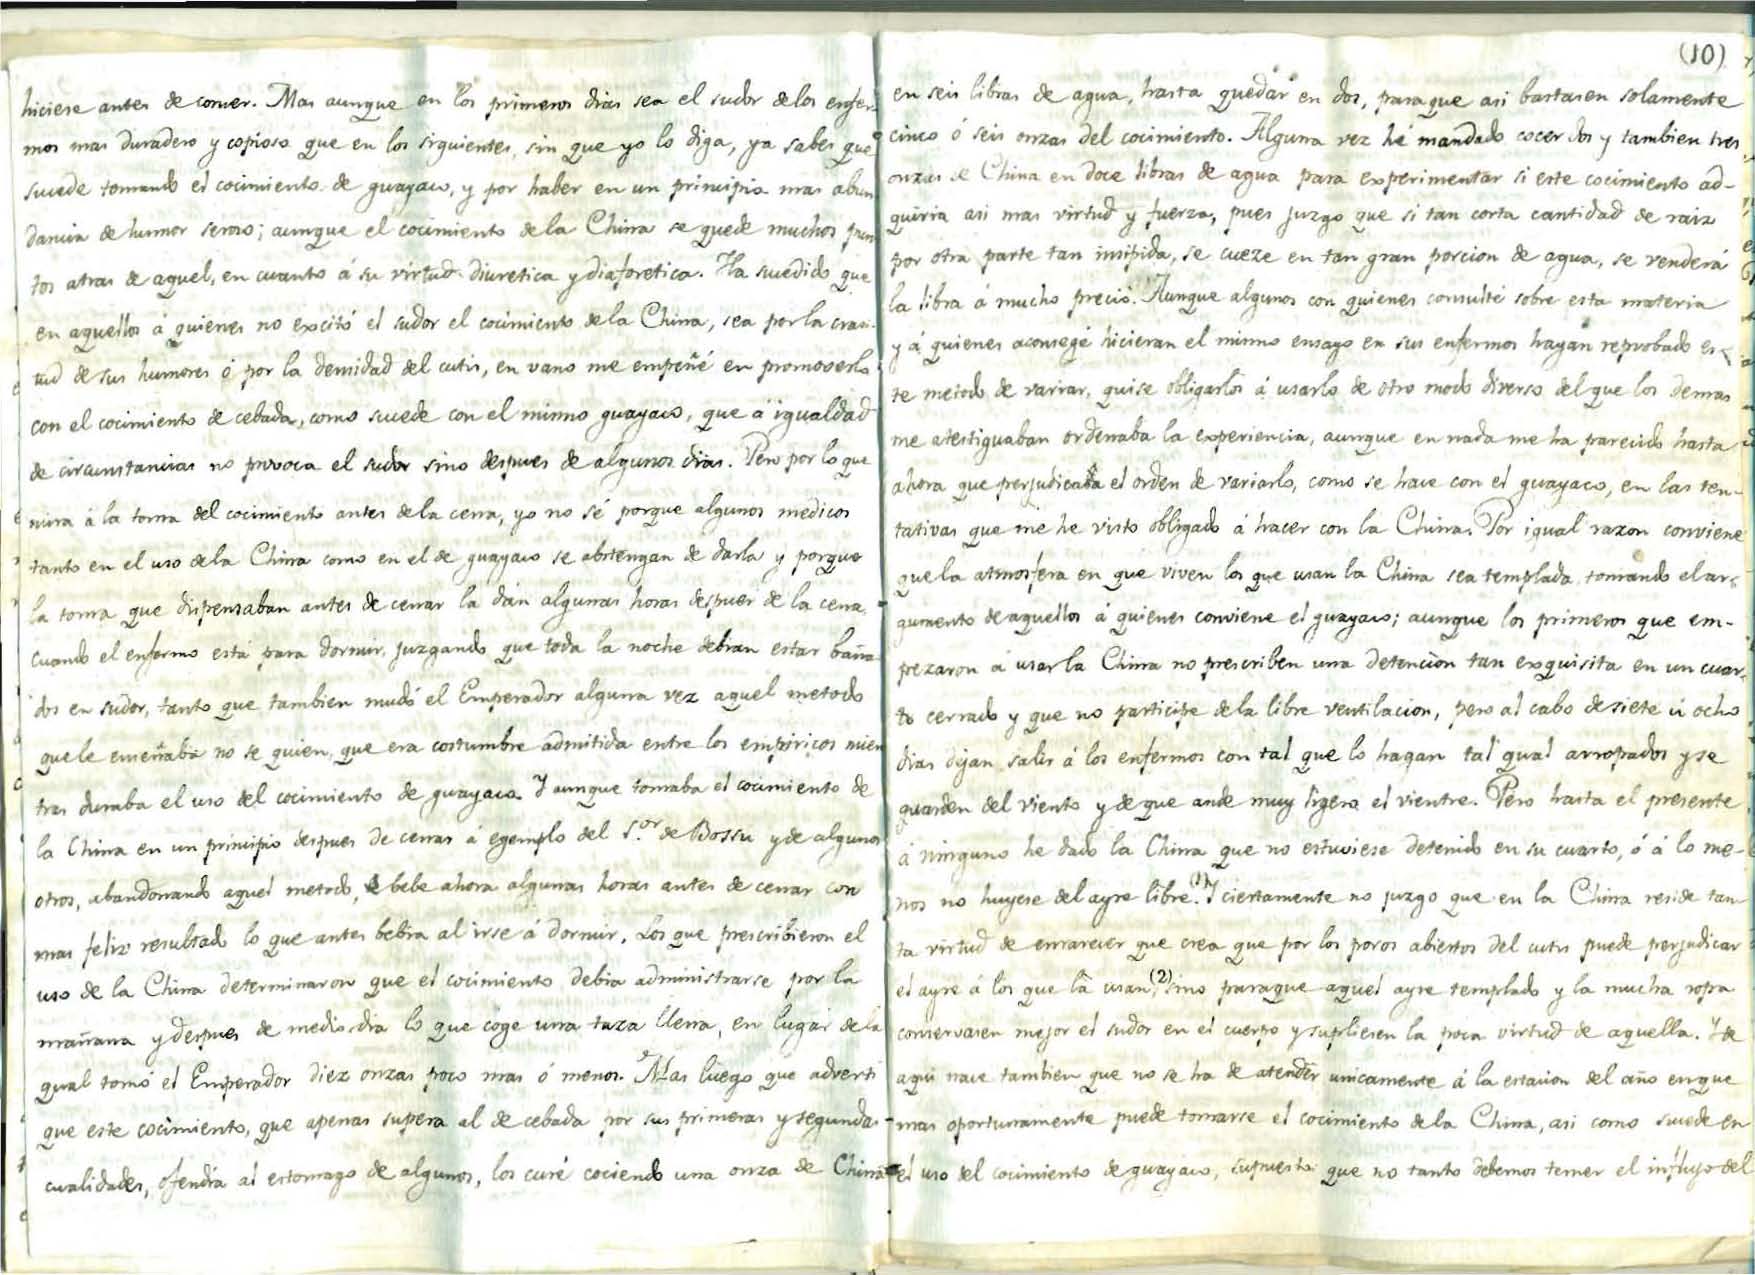 hiciese antes de comer. Mas aunque en los primeros dias sea el sudor de los enfer-
mos mas duradero y copioso que en los siguientes, sin que yo lo diga, ya sabes que
sucede tomando el cocimiento de guayaco, y por haber en un principio mas abun
dancia de humor seroso; aunque el cocimiento de la China se quede muchos pun
tos atras de aquel, en cuanto á su virtud diuretica y diaforetica. Ha sucedido que
en aquellos á quienes no excitó el sudor el cocimiento de la China, sea por la crasi-
tud de sus humores ó por la densidad del cutis, en vano me empeñé en promoverlo
con el cocimiento de cebada, como sucede con el mismo guayaco, que á igualdad
de circunstancias no provoca el sudor sino despues de algunos dias. Pero por lo que
mira á la toma del cocimiento antes de la cena, yo no sé porque algunos medicos
tanto en el uso de la China como en el de guayaco se abstengan de darla y porque
la toma que dispensaban antes de cenar la dán algunas horas despues de la cena
cuando el enfermo está para dormir, juzgando que toda la noche debian estar baña
dos en sudor, tanto que tambien mudó el Emperador alguna vez aquel metodo
que le enseñaba no se quien, que era costumbre admitida entre los empiricos mien
tras duraba el uso del cocimiento de guayaco. Y aunque tomaba el cocimiento de
la China en un principio despues de cenar á egemplo del S.or de Bossu y de algunos
otros, abandonando aquel metodo, bebe ahora algunas horas antes de cenar con
mas feliz resultado lo que antes bebia al irse á dormir. Los que prescribieron el
uso de la China determinaron que el cocimiento debia administrarse por la
mañana y despues de medio dia lo que coge una taza llena, en lugar de la
qual tomó el Emperador diez onzas poco mas ó menos. Mas luego que adverti
que este cocimiento, que apenas supera al de cebada por sus primeras y segundas
cualidades, ofendia al estomago de algunos, los curé cociendo una onza de China
(10)
en seis libras de agua, hasta quedar en dos, para que asi bastasen solamente
cinco ó seis onzas del cocimiento. Alguna vez hé mandado cocer dos y tambien tres
onzas de China en doce libras de agua para experimentar si este cocimiento ad-
quiria asi mas virtud y fuerza, pues juzgo que si tan corta cantidad de raiz
por otra parte tan insipida, se cueze en tan gran porcion de agua, se venderá
la libra á mucho precio. Aunque algunos con quienes consulté sobre esta materia
y á quienes aconsegé hicieran el mismo ensayo en sus enfermos hayan reprobado es-
te metodo de variar, quise obligarlos á usarlo de otro modo diverso del que los demas
me atestiguaban ordenaba la experiencia, aunque en nada me ha parecido hasta
ahora que perjudicaba el orden de variarlo, como se hace con el guayaco, en las ten-
tativas que me he visto obligado á hacer con la China. Por igual razon conviene
que la atmosfera en que viven los que usan la China sea templada tomando el ar-
gumento de aquellos á quienes conviene el guayaco; aunque los primeros que em-
pezaron á usar la China no prescriben una detencion tan exquisita en un cuar-
to cerrado y que no participe de la libre ventilacion, pero al cabo de siete ú ocho
dias dejan salir á los enfermos con tal que lo hagan tal qual arropados y se
guarden del viento y de que ande muy ligero el vientre. Pero hasta el presente
á ninguno he dado la China que no estuviese detenido en su cuarto, ó á lo me-
nos no huyese del ayre libre.(1) Y ciertamente no juzgo que en la China reside tan
ta virtud de enrarecer que crea que por los poros abiertos del cutis puede perjudicar
el ayre á los que la usan,(2) sino para que aquel ayre templado y la mucha ropa
conservasen mejor el sudor en el cuerpo y supliesen la poca virtud de aquella. Y de
aqui nace tambien que no se ha de atender unicamente á la estacion del año en que
mas oportunamente puede tomarse el cocimiento de la China, asi como sucede en
el uso del cocimiento de guayaco, supuesto que no tanto debemos temer el influjo del